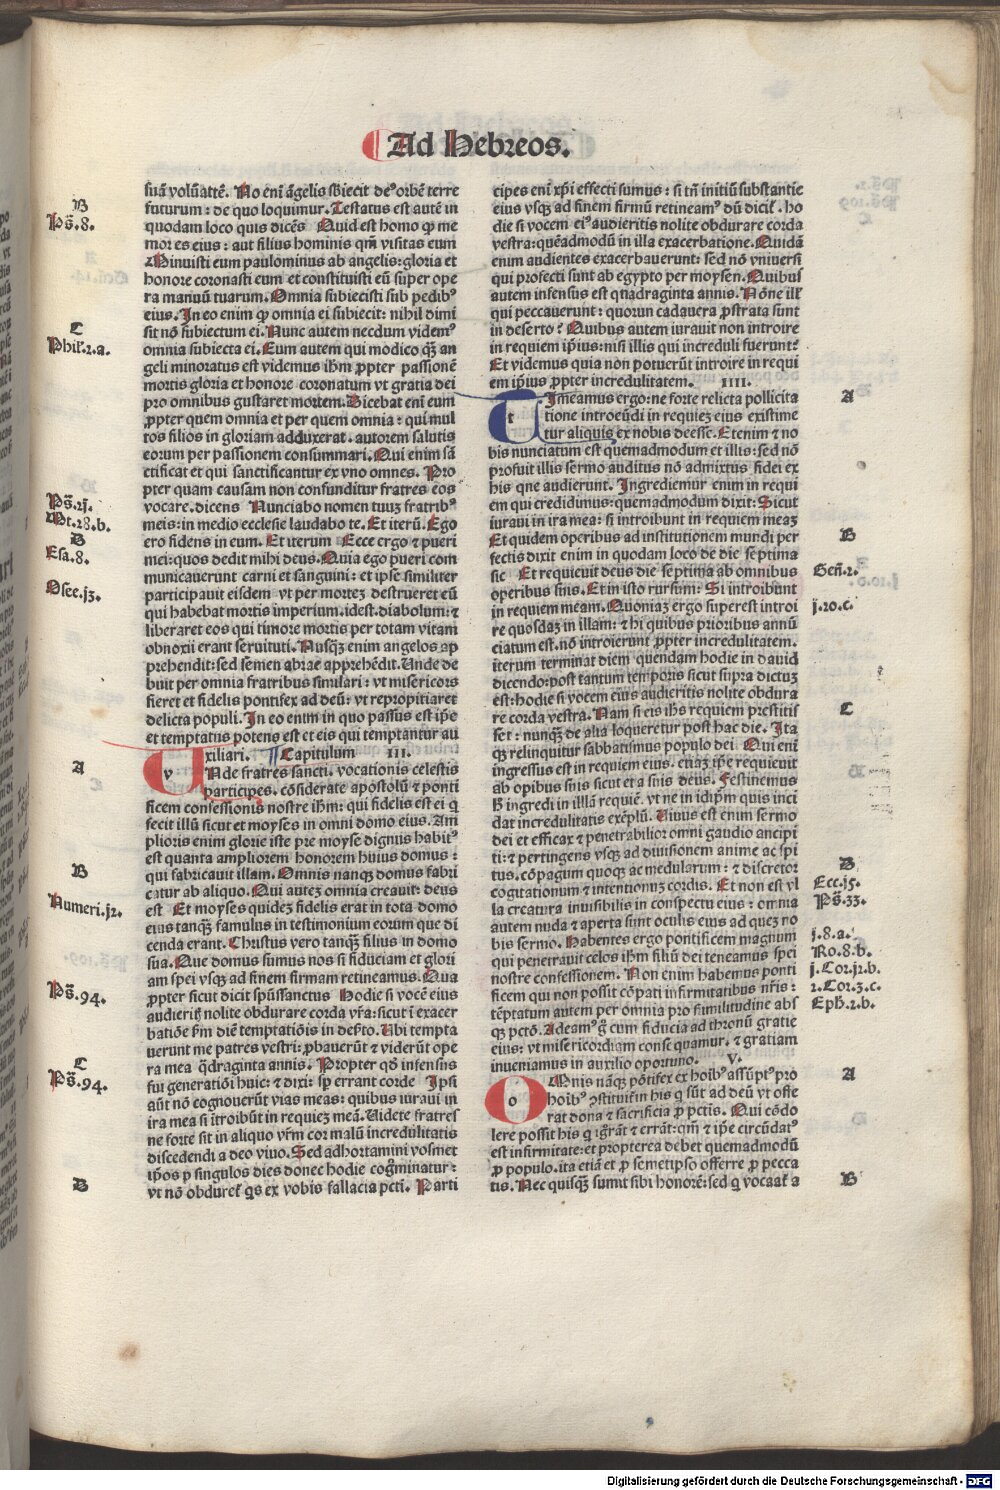 Ad Hebreos.
suā volūtatē. No enī āgelis sbiecit deꝰ orbē terre
futurum: de quo loquimur. Testatus est autē in
quodam loco quis dicēs Quid est homo ꝙ me
mor es eius: aut filius hominis qm̄ visitas eum
Minuisti eum paulominus ab angelis: gloria et
honore coronasti eum et constituisti eū super ope
ra manuū tuarum. Omnia subiecisti sub pedibꝰ
eius. In eo enim ꝙ omnia ei subiecit: nihil dimi
sit nō subiectum ei. Nunc autem necdum videmꝰ
omnia subiecta ei. Eum autem qui modico q̄ꝫ an
geli minoratus est videmus ihm̄ ꝓpter passionē
mortis gloria et honore coronatum vt gratia dei
pro omnibus gustaret mortem. Dicebat enī eum
ꝓpter quem omnia et per quem omnia: qui mul
tos filios in gloriam adduxerat. autorem salutis
eorum per passionem consummari. Qui enim sā
ctificat et qui sanctificantur ex vno omnes. Pro
pter quam causam non confunditur fratres eos
vocare. dicens Nunciabo nomen tuuꝫ fratribꝰ
meis: in medio ecclesie laudabo te. Et iterū. Ego
ero fidens in eum. Et iterum Ecce ergo ⁊ pueri
mei: quos dedit mihi deus. Quia ego pueri com
municauerunt carni et sanguini: et ipse similiter
participauit eisdem vt per morteꝫ destrueret eū
qui habebat mortis imperium. idest. diabolum: ⁊
liberaret eos qui timore mortis per totam vitam
obnoxii erant seruituti. Nusqꝫ enim angelos ap
prehendit: sed semen abrae apprehēdit. Unde de
buit per omnia fratribus similari: vt misericors
fieret et fidelis pontifex ad deū: vt repropitiaret
delicta populi. In eo enim in quo passus est ip̄e
et temptatus potens est et eis qui temptantur au
xiliari. Capitulum III.
Unde fratres sancti. vocationis celestis
participes. cōsiderate apostolū ⁊ ponti
ficem confessionis nostre ihm̄: qui fidelis est ei q̄
fecit illū sicut et moyses in omni domo eius. Am
plioris enim glorie iste pre moyse dignus habitꝰ
est quanta ampliorem honorem huius domus:
qui fabricauit illam. Omnis nanqꝫ domus fabri
catur ab aliquo. Qui auteꝫ omnia creauit: deus
est Et moyses quideꝫ fidelis erat in tota domo
eius tanqꝫ famulus in testimonium eorum que di
cenda erant. Christus vero tanqꝫ filius in domo
sua. Que domus sumus nos si fiduciam et glori
am spei vsqꝫ ad finem firmam retineamus. Qua
ꝓpter sicut dicit spūssanctus Hodie si vocē eius
audieritꝭ nolite obdurare corda vr̄a: sicut ī exacer
batiōe ẜm diē temptatiōis in deẜto. Ubi tempta
uerunt me patres vestri: ꝓbauerūt ⁊ viderūt ope
ra mea q̄draginta annis. Propter qd̄ infensus
fui generatiōi huic: ⁊ dixi: sp̄ errant corde Ipsi
aūt nō cognouerūt vias meas: quibus iuraui in
ira mea si ītroibūt in requieꝫ meā. Uidete fratres
ne forte sit in aliquo vr̄m cor malū incredulitatis
discedendi a deo viuo. Sed adhortamini vosmet
ip̄os p singulos dies donec hodie cogn̄minatur:
vt nō obduret̄ qs̄ ex vobis fallacia pcti. Parti
cipes enī xp̄i effecti sumus: si tn̄ initiū substantie
eius vsqꝫ ad finem firmū retineamꝰ dū dicit̄. ho
die si vocem eiꝰ audieritis nolite obdurare corda
vestra: quēadmodū in illa exacerbatione. Quidā
enim audientes exacerbauerunt: sed nō vniuersi
qui profecti sunt ab egypto per moysen. Quibus
autem infensus est quadraginta annis. Nōne illꝭ
qui peccauerunt: quorum cadauera ꝓstrata sunt
in deserto? Quibus autem iurauit non introire
in requiem ip̄ius: nisi illis qui increduli fuerunt?
Et videmus quia non potuerūt introire in requi
em ip̄ius ꝓpter incredulitatem. IIII.
Timeamus ergo: ne forte relicta pollicita
tione introeūdi in requieꝫ eius existime
tur aliquis ex nobis deesse. Etenim ⁊ no
bis nunciatum est quemadmodum et illis: sed nō
profuit illis sermo auditus nō admixtus fidei ex
his que audierunt. Ingrediemur enim in requi
em qui credidimus: quemadmodum dixit: Sicut
iuraui in ira mea: si introibunt in requiem meaꝫ
Et quidem operibus ad institutionem mundi per
fectis dixit enim in quodam loco de die septima
sic Et requieuit deus die septima ab omnibus
operibus suis. Et in isto rursum: Si introibunt
in requiem meam. Quoniaꝫ ergo superest introi
re quosdaꝫ in illam: ⁊ hi quibus prioribus annū
ciatum est. nō introierunt ꝓpter incredulitatem.
iterum terminat diem quendam hodie in dauid
dicendo: post tantum temporis sicut supra dictuꝫ
est: hodie si vocem eius audieritis nolite obdura
re corda vestra. Nam si eis ihs̄ requiem prestitis
set: nunqꝫ de alia loqueretur post hac die. Ita
qꝫ relinquitur sabbatismus populo dei. Qui enī
ingressus est in requiem eius. etiaꝫ ip̄e requieuit
ab opibus suis sicut et a suis deus. Festinemus
ḡ ingredi in illā requiē. vt ne in idip̄m quis inci
dat incredulitatis exēplū. Uiuus est enim sermo
dei et efficax ⁊ penetrabilior omni gaudio ancipi
ti: ⁊ pertingens vsqꝫ ad diuisionem anime ac spi
tus. cōpagum quoqꝫ ac medularum: ⁊ discretor
cogitationum ⁊ intentionuꝫ cordis. Et non est vl
la creatura inuisibilis in conspectu eius: omnia
autem nuda ⁊ aperta sunt oculis eius ad queꝫ no
bis sermo. Habentes ergo pontificem magnum
qui penetrauit celos ihm̄ filiū dei teneamus spei
nostre confessionem. Non enim habemus ponti
ficem qui non possit cōpati infirmitatibus nr̄is:
tēptatum autem per omnia pro similitudine absꝫ
qꝫ pctō. Adeamꝰ g̃ cum fiducia ad thronū gratie
eius: vt misericordiam consequamur. ⁊ gratiam
inueniamus in auxilio oportuno. V.
Omnis nāqꝫ pōtifex ex hoībꝰ assūptꝰ pro
hoībꝰ ꝯstituit̄ in his q̄ sūt ad deū vt offe
rat dona ⁊ sacrificia ꝓ pctis. Qui cōdo
lere possit his q̄ ignorāt ⁊ errāt: qm̄ ⁊ ip̄e circūdatꝰ
est infirmitate: et propterea debet quemadmodū
ꝓ populo. ita etiā et ꝓ semetipso offerre ꝓ pecca
tis. Nec quisqꝫ sumit sibi honorē: sed q̄ vocat̄ a
B
Ps̄.8.
C
Phil̄.2.a.
Ps̄.21.
Mt.28.b.
D
Esa.8.
Osee.13.
A
B
Numeri.12.
Ps̄.94.
C
Ps̄.94.
D
A
B
Gen̄.2.
j.10.c.
C
D
Ecc.15.
Ps̄.33.
j.8.a.
Ro.8.b.
j.Cor.12.b.
2.Cor.3.c.
Eph̄.2.b.
A
B
Digitalisierung gefördert durch die Deutsche Forschungsgemeinschaft - DFG